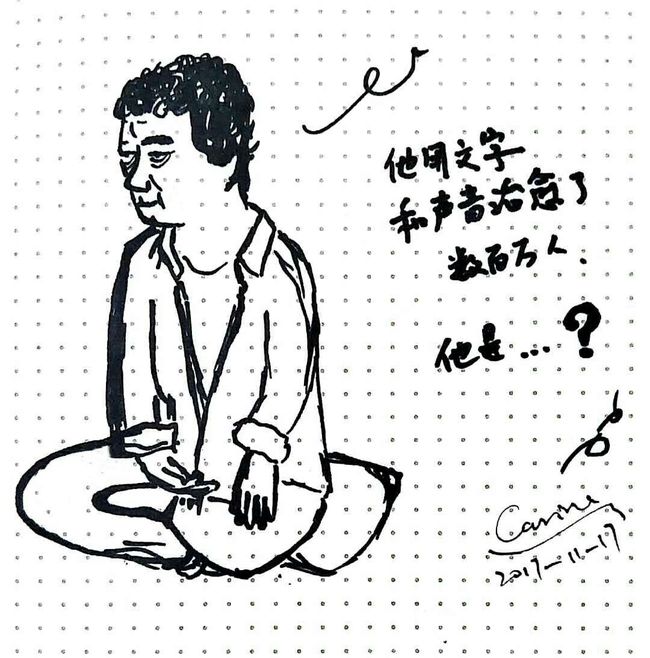 他用文字
和声音治愈了
数百万人.
他是...?
Carine
2017-11-17